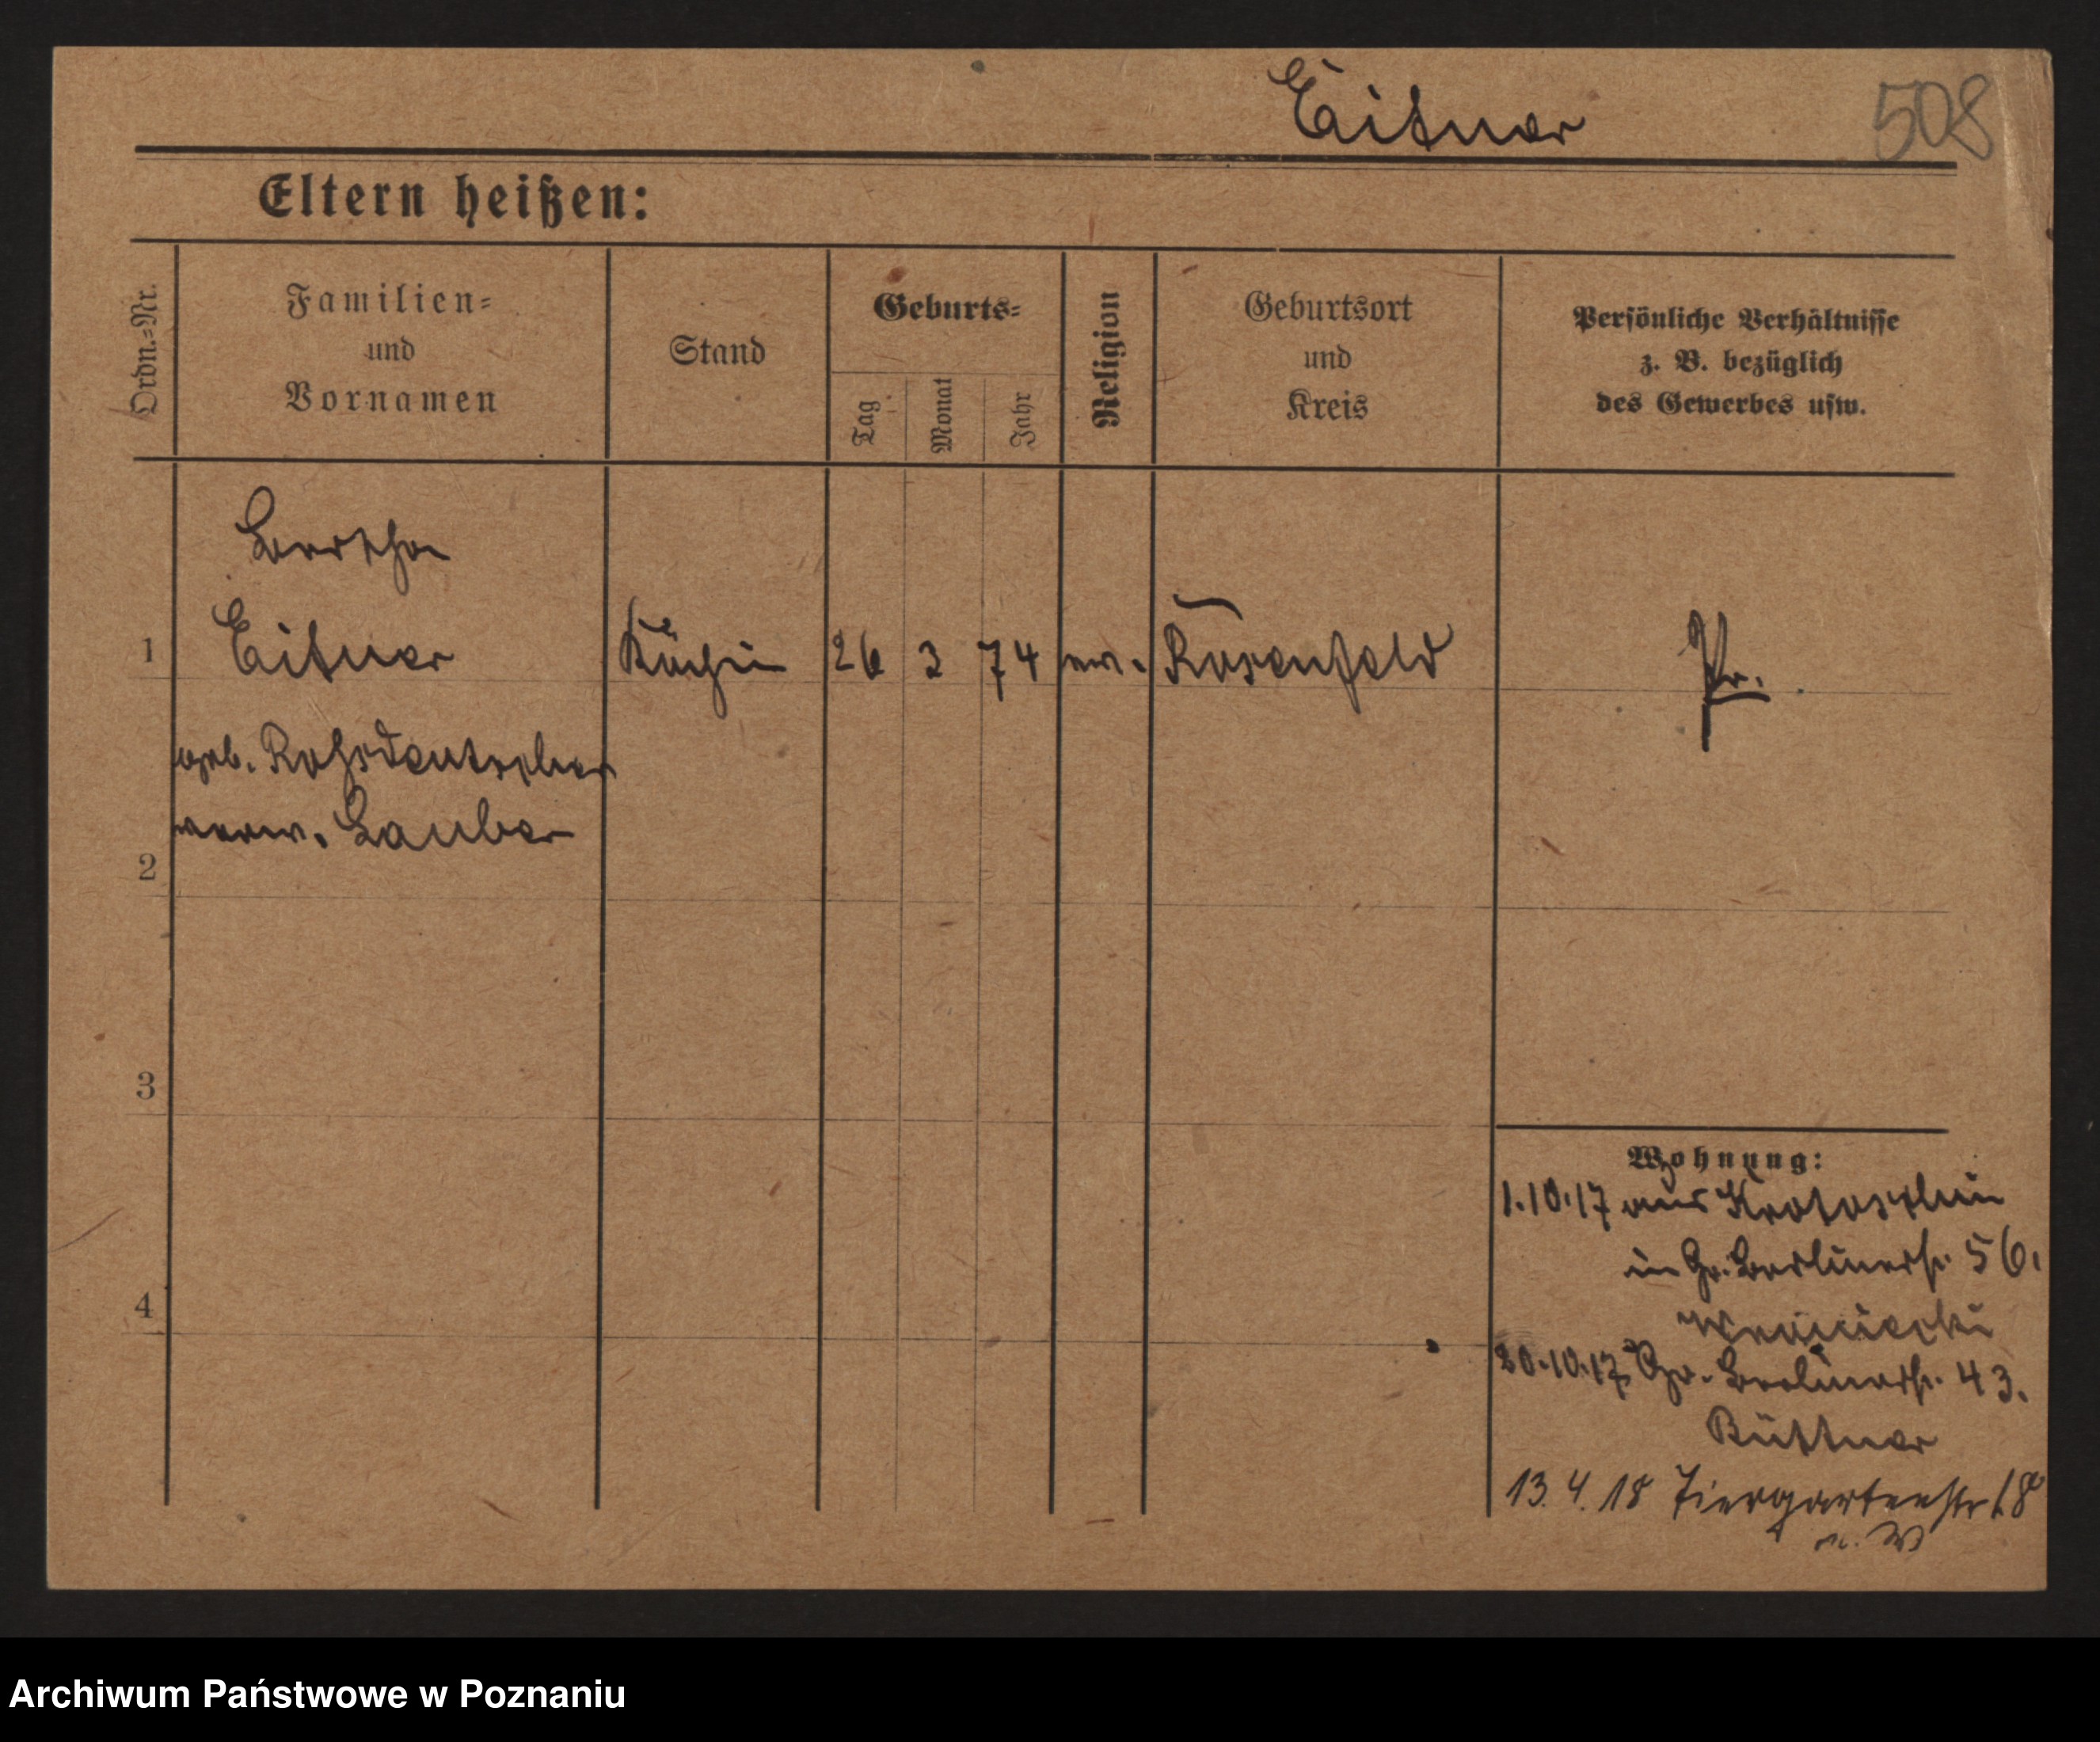 Eitner 508
Eltern heißen:
Ordn.=Nr.
Familien=
und
Vornamen
Stand
Geburts=
Tag
Monat
Jahr
Religion
Geburtsort
und
Kreis
Persönliche Verhältnisse
z. B. bezüglich
des Gewerbes usw.
Bertha
1 Eitner Köchin 26 3 74 ev. Rosenfeld Pr.
geb. Rohrdeutscher
verw. Lauber
2
3
4
Wohnung:
1.10.17 aus Krotoschin
in Gr. Berlinerstr. 56.
20.10.17 Gr. Berlinerstr. 43.
Büttner
13. 4. 18 Tiergartenstr 18
Archiwum Państwowe w Poznaniu